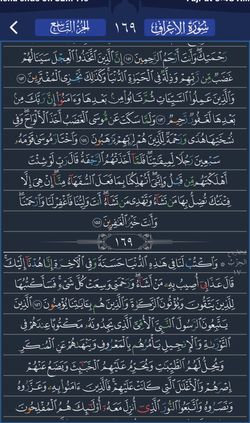 سُورَةُ الأَعْرَافِ ١٦٩ الجُزْءُ التَّاسِعُ
رَحْمَتِكَ وَأَنتَ أَرْحَمُ ٱلرَّٰحِمِينَ ١٥١ إِنَّ ٱلَّذِينَ ٱتَّخَذُوا۟ ٱلْعِجْلَ سَيَنَالُهُمْ
غَضَبٌ مِّن رَّبِّهِمْ وَذِلَّةٌ فِى ٱلْحَيَوٰةِ ٱلدُّنْيَا وَكَذَٰلِكَ نَجْزِى ٱلْمُفْتَرِينَ ١٥٢
وَٱلَّذِينَ عَمِلُوا۟ ٱلسَّيِّـَٔاتِ ثُمَّ تَابُوا۟ مِنۢ بَعْدِهَا وَءَامَنُوٓا۟ إِنَّ رَبَّكَ مِنۢ
بَعْدِهَا لَغَفُورٌ رَّحِيمٌ ١٥٣ وَلَمَّا سَكَتَ عَن مُّوسَى ٱلْغَضَبُ أَخَذَ ٱلْأَلْوَاحَ وَفِى
نُسْخَتِهَا هُدًى وَرَحْمَةٌ لِّلَّذِينَ هُمْ لِرَبِّهِمْ يَرْهَبُونَ ١٥٤ وَٱخْتَارَ مُوسَىٰ قَوْمَهُۥ
سَبْعِينَ رَجُلًا لِّمِيقَٰتِنَا فَلَمَّآ أَخَذَتْهُمُ ٱلرَّجْفَةُ قَالَ رَبِّ لَوْ شِئْتَ
أَهْلَكْتَهُم مِّن قَبْلُ وَإِيَّٰىَ أَتُهْلِكُنَا بِمَا فَعَلَ ٱلسُّفَهَآءُ مِنَّآ إِنْ هِىَ إِلَّا
فِتْنَتُكَ تُضِلُّ بِهَا مَن تَشَآءُ وَتَهْدِى مَن تَشَآءُ أَنتَ وَلِيُّنَا فَٱغْفِرْ لَنَا وَٱرْحَمْنَا
وَأَنتَ خَيْرُ ٱلْغَٰفِرِينَ ١٥٥
١٦٩
۞ وَٱكْتُبْ لَنَا فِى هَٰذِهِ ٱلدُّنْيَا حَسَنَةً وَفِى ٱلْـَٔاخِرَةِ إِنَّا هُدْنَآ إِلَيْكَ
قَالَ عَذَابِىٓ أُصِيبُ بِهِۦ مَنْ أَشَآءُ وَرَحْمَتِى وَسِعَتْ كُلَّ شَىْءٍ فَسَأَكْتُبُهَا
لِلَّذِينَ يَتَّقُونَ وَيُؤْتُونَ ٱلزَّكَوٰةَ وَٱلَّذِينَ هُم بِـَٔايَٰتِنَا يُؤْمِنُونَ ١٥٦ ٱلَّذِينَ
يَتَّبِعُونَ ٱلرَّسُولَ ٱلنَّبِىَّ ٱلْأُمِّىَّ ٱلَّذِى يَجِدُونَهُۥ مَكْتُوبًا عِندَهُمْ فِى
ٱلتَّوْرَىٰةِ وَٱلْإِنجِيلِ يَأْمُرُهُم بِٱلْمَعْرُوفِ وَيَنْهَىٰهُمْ عَنِ ٱلْمُنكَرِ
وَيُحِلُّ لَهُمُ ٱلطَّيِّبَٰتِ وَيُحَرِّمُ عَلَيْهِمُ ٱلْخَبَٰٓئِثَ وَيَضَعُ عَنْهُمْ
إِصْرَهُمْ وَٱلْأَغْلَٰلَ ٱلَّتِى كَانَتْ عَلَيْهِمْ فَٱلَّذِينَ ءَامَنُوا۟ بِهِۦ وَعَزَّرُوهُ
وَنَصَرُوهُ وَٱتَّبَعُوا۟ ٱلنُّورَ ٱلَّذِىٓ أُنزِلَ مَعَهُۥٓ أُو۟لَٰٓئِكَ هُمُ ٱلْمُفْلِحُونَ